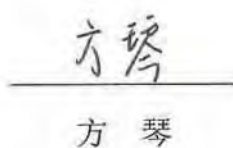 方琴
方 琴